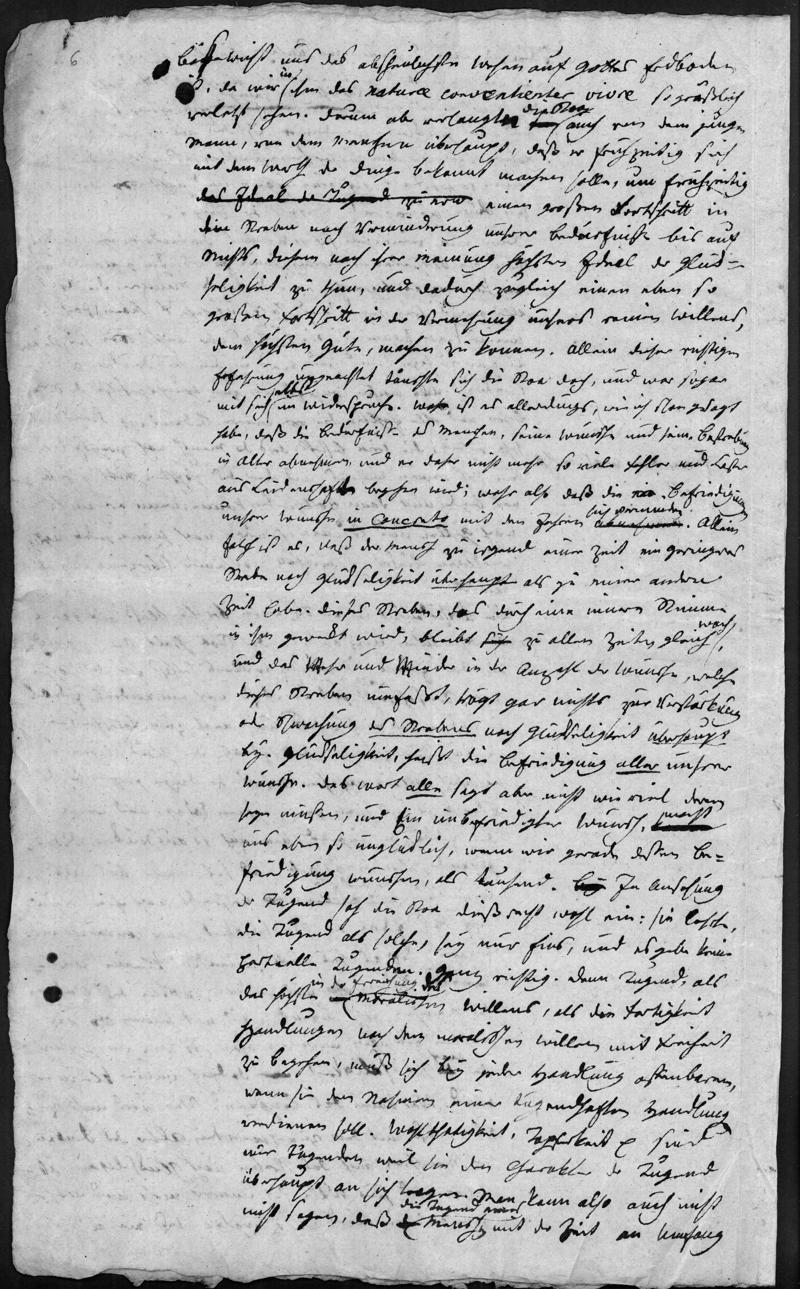 6
Bösewicht und das abscheulichste Wesen auf Gottes Erdboden
ist, da wir in ihm das naturae convenienter vivre so gräßlich
verletzt sehen. Darum aber verlangte die Stoa auch von dem jungen
Mann, von dem Menschen überhaupt, daß er frühzeitig sich
mit dem Werth der Dinge bekannt machen solle, um frühzeitig
das Ideal der Tugend zu einen großen Fortschritt in
dem Streben nach Verminderung unsrer Bedürfniße bis auf
Nichts, diesem nach ihrer Meinung höchsten Ideal der Glück-
seligkeit zu thun, und dadurch zugleich einen eben so
großen Fortschritt in der Vermehrung unsers reinen Willens,
dem höchsten Gute, machen zu können. Allein dieser richtigen
Erfahrung ungeachtet täuschte sich die Stoa doch, und war sogar
mit sich selbst im Widerspruche. Wahr ist es allerdings, wie ich schon gesagt
habe, daß die Bedürfniße des Menschen, seine Wünsche und seine Bestrebungen
im Alter abnehmen und er daher nicht mehr so viele Fehler und Laster
aus Leidenschaft begehen wird; wahr also daß die Befriedigung
unsrer Wünsche in Concreto mit den Jahren sich vermindern. Allein
falsch ist es, daß der Mensch zu irgend einer Zeit ein geringeres
Streben nach Glückseligkeit überhaupt als zu einer andern
Zeit habe. Dieses Streben, das durch eine innere Stimme
in ihm geweckt wird, bleibt sich zu allen Zeiten gleich wach,
und das Mehr und Minder in der Anzahl der Wünsche, welche
dieses Streben umfasst, trägt gar nichts zur Verstärkung
oder Schwächung des Strebens nach Glückseligkeit überhaupt
bey. Glückseligkeit, heißt die Befriedigung aller unsrer
Wünsche. Das Wort alle sagt aber nicht wie viel deren
seyn müßen, und Ein unbefriedigter Wunsch, macht
uns eben so unglücklich, wenn wir gerade dessen Be-
friedigung wünschen, als tausend. In Ansehung
der Tugend sah die Stoa dieß recht wohl ein: sie lehrte,
die Tugend als solche, sey nur Eins, und es gebe keine
partielle Tugenden. Ganz richtig. Denn Tugend, als
das höchste in der Erreichung des moralischen Willens, als die Fertigkeit
Handlungen nach dem moralischen Willen mit Freiheit
zu begehen, muß sich bey jeder Handlung offenbaren,
wenn sie den Nahmen einer tugendhaften Handlung
verdienen soll. Wohlthätigkeit, Tapferkeit sind
nur Tugenden weil sie den Charakter der Tugend
überhaupt an sich tragen. Man kann also auch nicht
nicht sagen, daß die Tugend eines Menschen mit der Zeit an Umfang